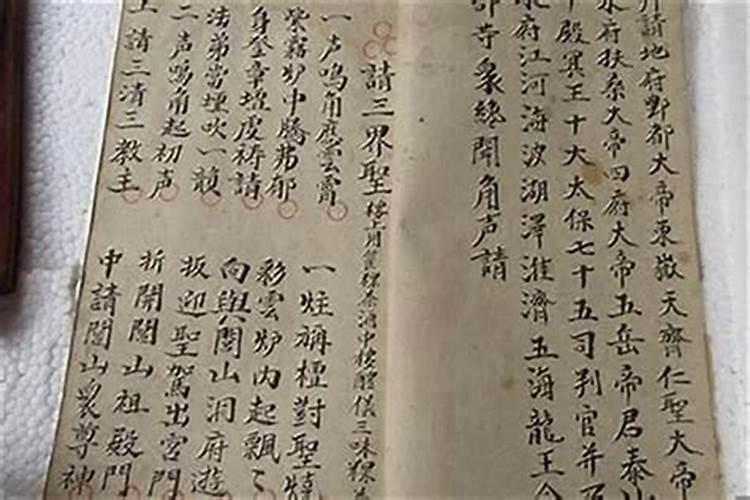 拜請地府酆都大帝東嶽天齊仁聖大帝
水府扶桑大帝四府大帝五岳帝君泰山
殿冥王十大太保七十五司判官并乃
府江河海波湖澤淮濟五海龍王
等衆總聞角声請
請三界聖
一声鳴角應雲霄
一炷稱檀對聖燒
紫霧炉中騰茀郁
彩雲炉内起飄〻
身登章壇虔禱請
向與閭山洞府遊
法弟當壇吹一䪴
扳迎聖駕出宮門
二声鳴角起初声
折開閭山祖殿門
上請三清三教主
中請閭山衆尊神